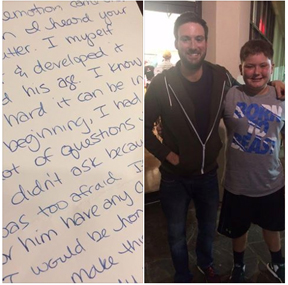 emotion came
I heard your
I myself
& developed it
his age. I know
hard it can be in
beginning, I had
lot of questions
didn't ask becau
was too afraid. I
or him have any
I would be hon
make thi
BORN
TO
BEAST